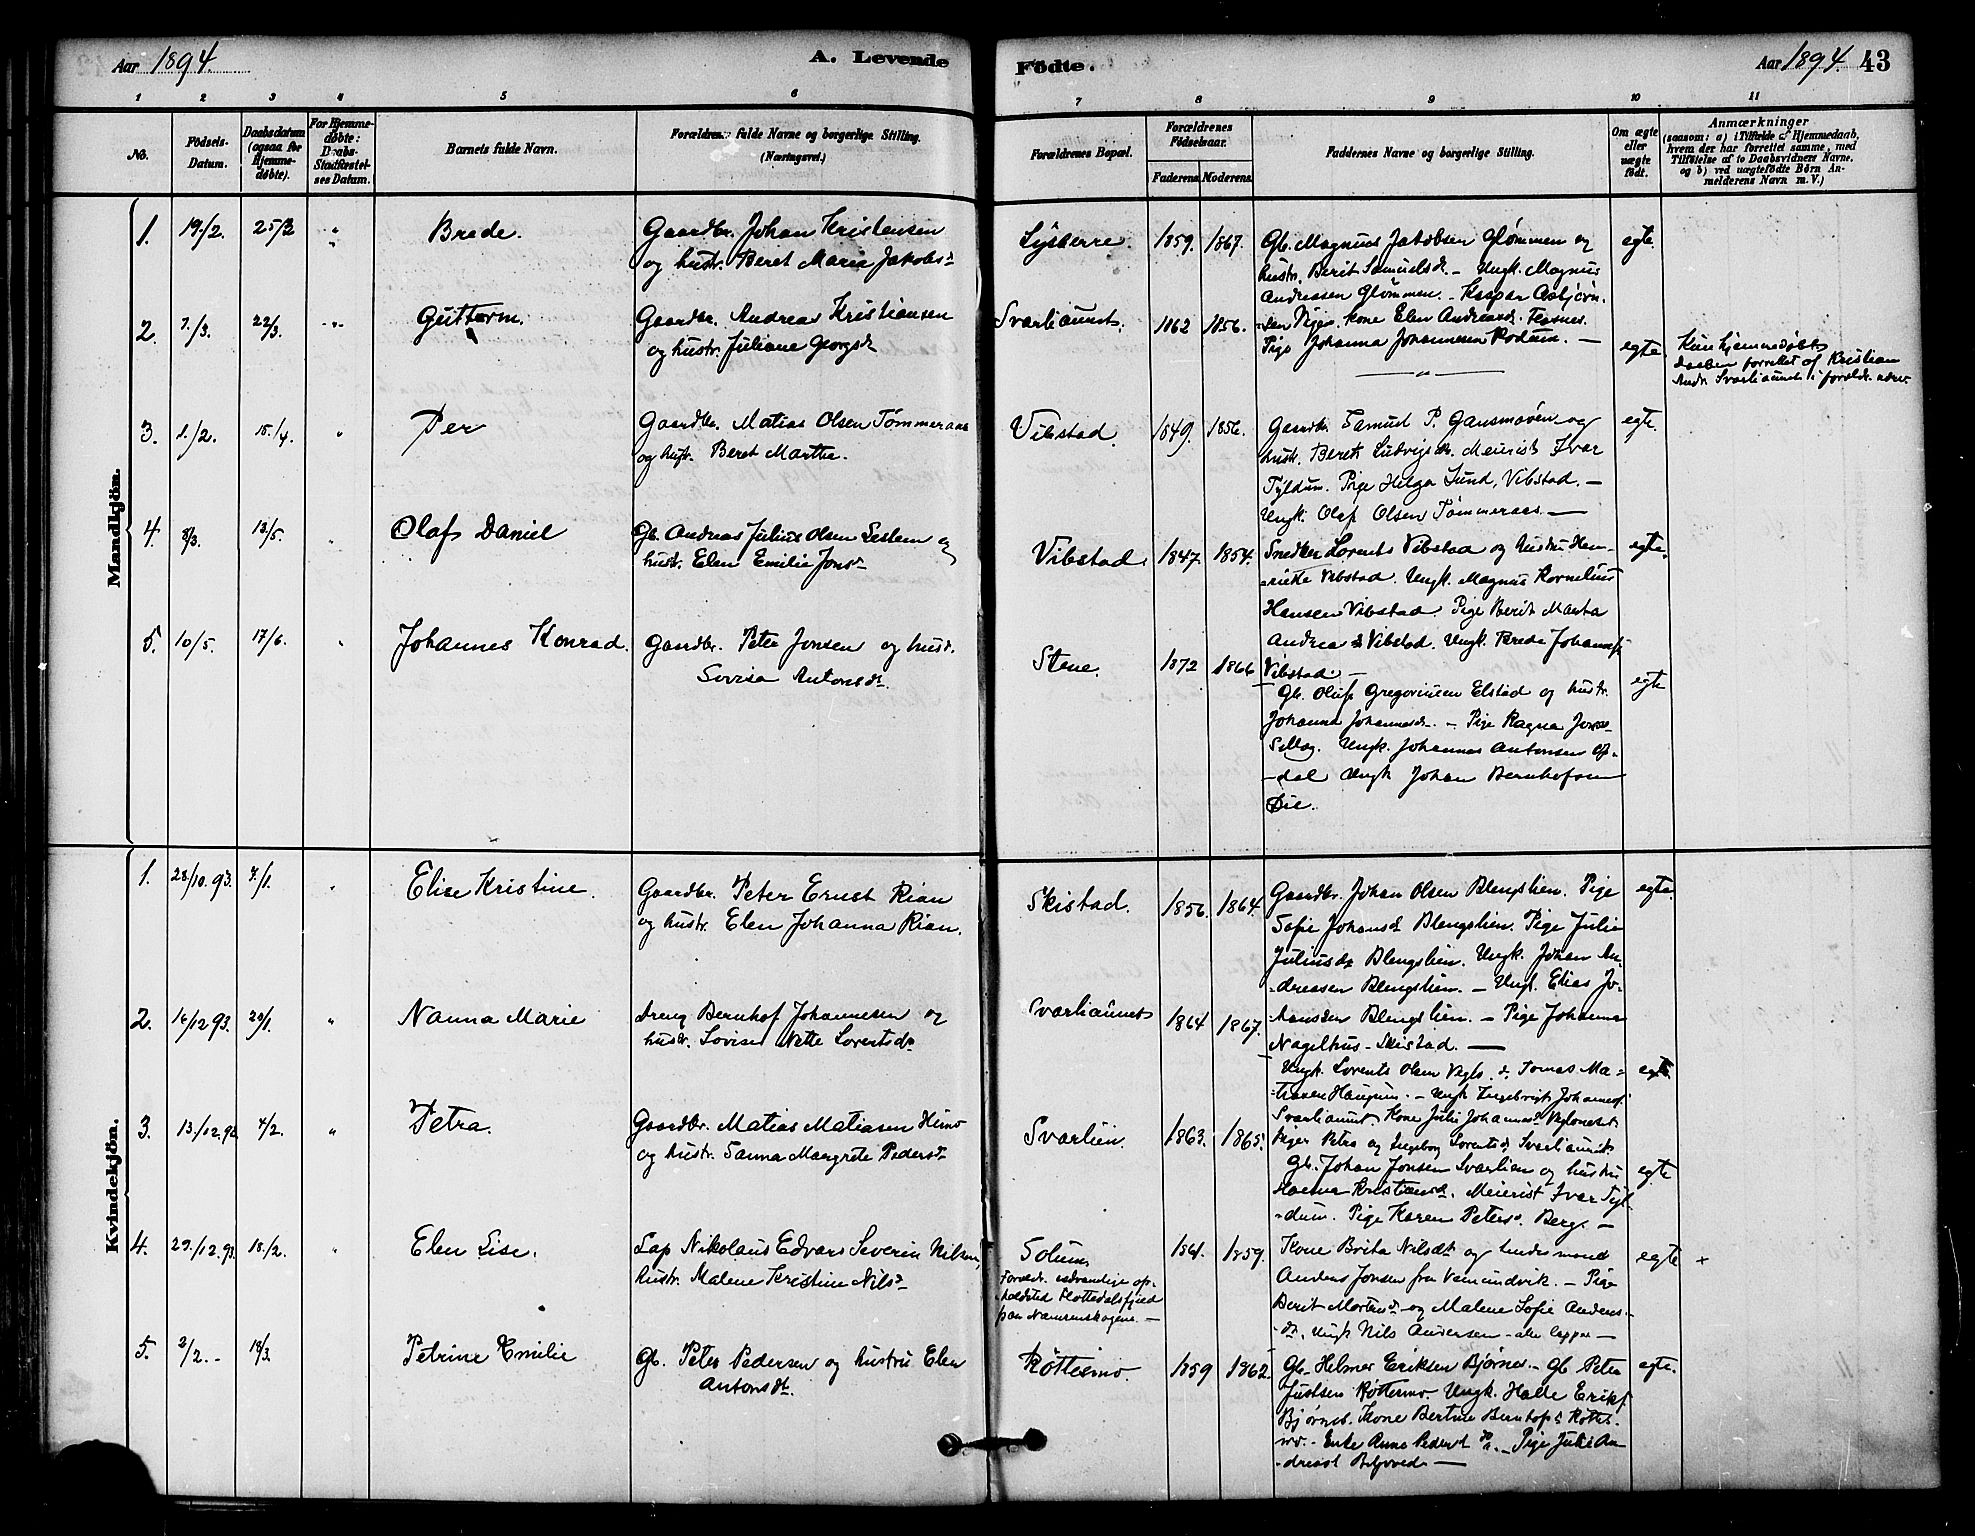 Aar 1894
A. Levende
Födte.
Aar 1894. 43
1 2 3 4 5 6 7 8 9 10 11
No.
Födsels-
Datum.
Daabsdatum
(ogsaa for
Hjemme-
døbte).
For Hjemme-
døbte:
Daabs-
Stadfæstel-
ses Datum.
Barnets fulde Navn.
Forældrenes fulde Navne og borgerlige Stilling.
(Næringsvei.)
Forældrenes Bopæl.
Forældrenes
Fødselsaar.
Faderens. Moderens.
Faddernes Navne og borgerlige Stilling.
Om ægte
eller
uægte
født.
Anmærkninger
(saasom: a) i Tilfælde af Hjemmedaab,
hvem der har forrettet samme, med
Tilføielse af to Daabsvidners Navne.
og b) ved uægtefødte Børn An-
melderens Navn m. V.)
Mandkjön.
1. 19/2. 25/3 " Brede. Gaardbr. Johan Kristensen
og hustr. Beret Maria Jakobsd.
Lysberre. 1859. 1867. Gb. Magnus Jakobsen Glømmen og
hustr. Berit Samuelsd. - Ungk. Magnus
Andreasen Glømmen. - Kaspar Asbjørn-
egte.
2. 7./3. 22/3. " Guttorm. Gaardbr. Andreas Kristiansen
og hustr. Juliane Georgsd.
Svarliaunet. 1862 1856. sen Kone Elen Andreasd.
Pige Johanna Johannesen Rodum. -
— " —
egte Kun hjemmedøbt
Daaben forrettet af Kristian
Andr. Svarliaunet i forældr. nærv.
3. 1/2. 15./4. " Per Gaardbr. Matias Olsen Tømmeraas
og hustr. Beret Martha.
Vibstad. 1849. 1856. Gaardbr. Samuel P. Gansmoen og
hustr. Beret Ludvigsd. Meierist Ivar
Tyldum. Pige Helga Lund, Vibstad. -
Ungk. Olaf Olsen Tømmeraas. -
egte.
4. 8/3. 13/5. " Olaf Daniel Gb. Andreas Julius Olsen Seslem og
hustr. Elen Emilie Jonsd.
Vibstad. 1847. 1854. Snedker Lorents Vibstad og hustru Hen-
-riette Vibstad. Ungk. Magnus Kornelius
Hansen Vibstad. Pige Berit Marta
Andreasd Vibstad. Ungk. Brede Johannes
Vibstad -
egte.
5. 10/5. 17/6. " Johannes Konrad. Gaardbr. Peter Jonsen og hustr.
Lovisa Antonsd.
Stene. 1872 1866 Gb. Oluf Gregoriusen Elstad og hustr.
Johanna Johannesd. - Pige Ragna
Ungk. Johannes Antonsen Op-
-dal Ungk Johan Bernhofsen
Øie.
egte
Kvindekjön.
1. 28/10.93. 7/1. " Elise Kristine. Gaardbr. Peter Ernst Rian
og hustr. Elen Johanna Rian.
Skistad. 1856. 1864. Gaardbr. Johan Olsen Blengslien. Pige
Sofie Johansd Blengslien. Pige Julie
Juliusd. Blengslien. Ungk. Johan An-
-dreasen Blengslien. - Ungk. Elias Jo-
hansen Blengslien. - Pige Johanna
Nagelhus - Skistad. -
egte.
2. 16/12 93. 20/1. " Nanna Marie Dreng Bernhof Johannesen og
hustr. Lovise Nette Lorentsd.
Svarliaunet 1864 1867. Ungk. Lorents Olsen Tomas Ma-
Haugum. - Ungk Ingebrigt Johannes
Svarliaunet. Kone Julie Johannesd
Piger Petra og Ingeborg Lorentsd Svarliaunet
egte
3. 13./12.93. 4/2. " Petra. Gaardbr. Matias Matiasen Himo
og hustr. Sanna Margrete Pedersd.
Svarlien. 1863. 1865. Gb. Johan Jonsen Svarlien og hustru
Kristiansd. Meierist Ivar Tyl-
-dum. Pige Karen Petersd. Berg. -
egte
4. 29/12.93. 18/2. " Elen Lise. Lap Nikolaus Edvard Severin Nilsen,
hustr. Malene Kristine Nilsd.
Solum,
Forældr. sædvanlige op-
holdsted Flottedalsfjeld
paa Namsenskogene. -
1861. 1859. Kone Brita Nilsdt og hendes mand
Anders Jonsen fra Vemundvik. - Pige
Berit Mortensd. og Malene Sofie Anders-
-dt. Ungk Nils Andersen - alle lapper -
egte +
5. 2/2. - 18/3. Petrine Emilie Gb. Peter Pedersen og hustru Elen
Antonsdt.
Røttesmo. 1859 1862 Gb. Helmer Eriksen Bjørnes. - Gb Peter
Juulsen Røttesmo. Ungk. Halle Eriks.
Bjørnes. Kone Bertine Bernhofsd Røttes-
mo. - Enke Anne Pedersd - Pige Julie An
dreasd -
egte.